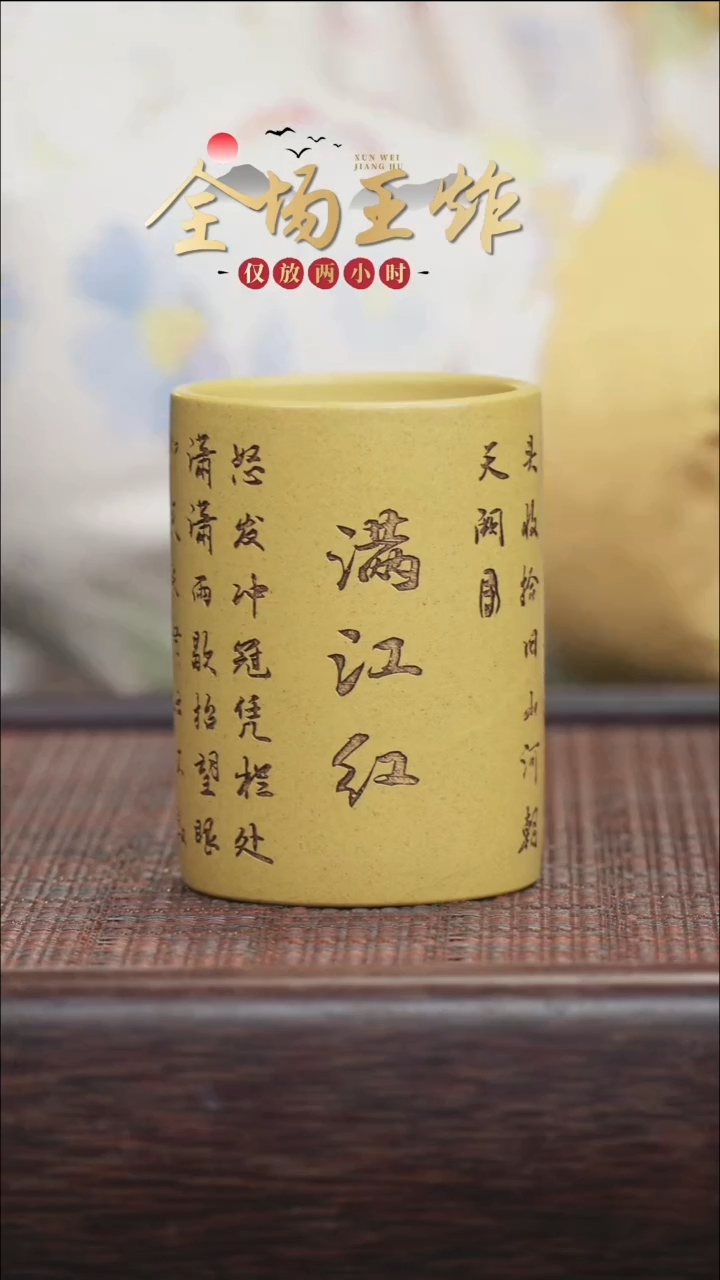 全场王炸
XUN WEI
JIANG HU
仅放两小时
头收拾旧山河朝
天阙
满江红
怒发冲冠凭栏处
潇潇雨歇抬望眼